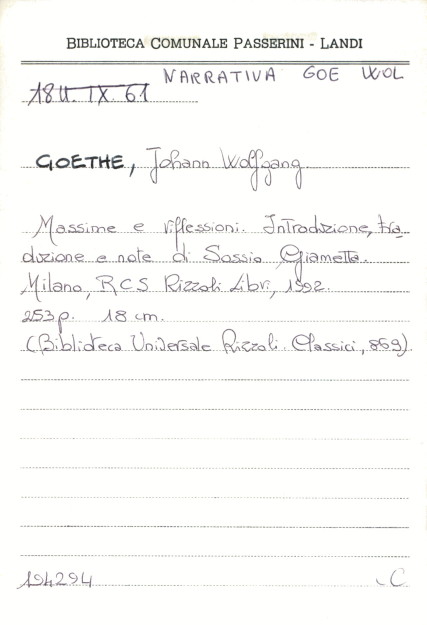 BIBLIOTECA COMUNALE PASSERINI - LANDI
NARRATIVA GOE WOL
18U. IX. 61
GOETHE, Johann Wolfgang
Massime e riflessioni. Introduzione, tra
duzione e note di Sossio Giametta.
Milano, RCS Rizzoli Libri, 1992.
253 p. 18 cm.
(Biblioteca Universale Rizzoli. Classici, 869).
194294 C